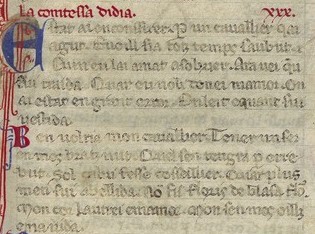 La contessa didia. XXX.
Estat ai en consirier. Per un cavallier qei
agut. E uoill sia toz temps saubut.
Cum eu lai amat a sobrier. Ara uei qu
Au traida. Quar eu non donei mamor. On
ai estat en grant error. En leit e quant sui
uestida.
Ben uolria mon cavalher. Tener un ser
en mos braz nut. Quel sen tengra per ere
buz. Sol qua lui fesse coseillier. Car plus
men sui abellida. No fis floris de blasa flor.
Mon cor e amor. mon sen mos oillz
e ma uida.